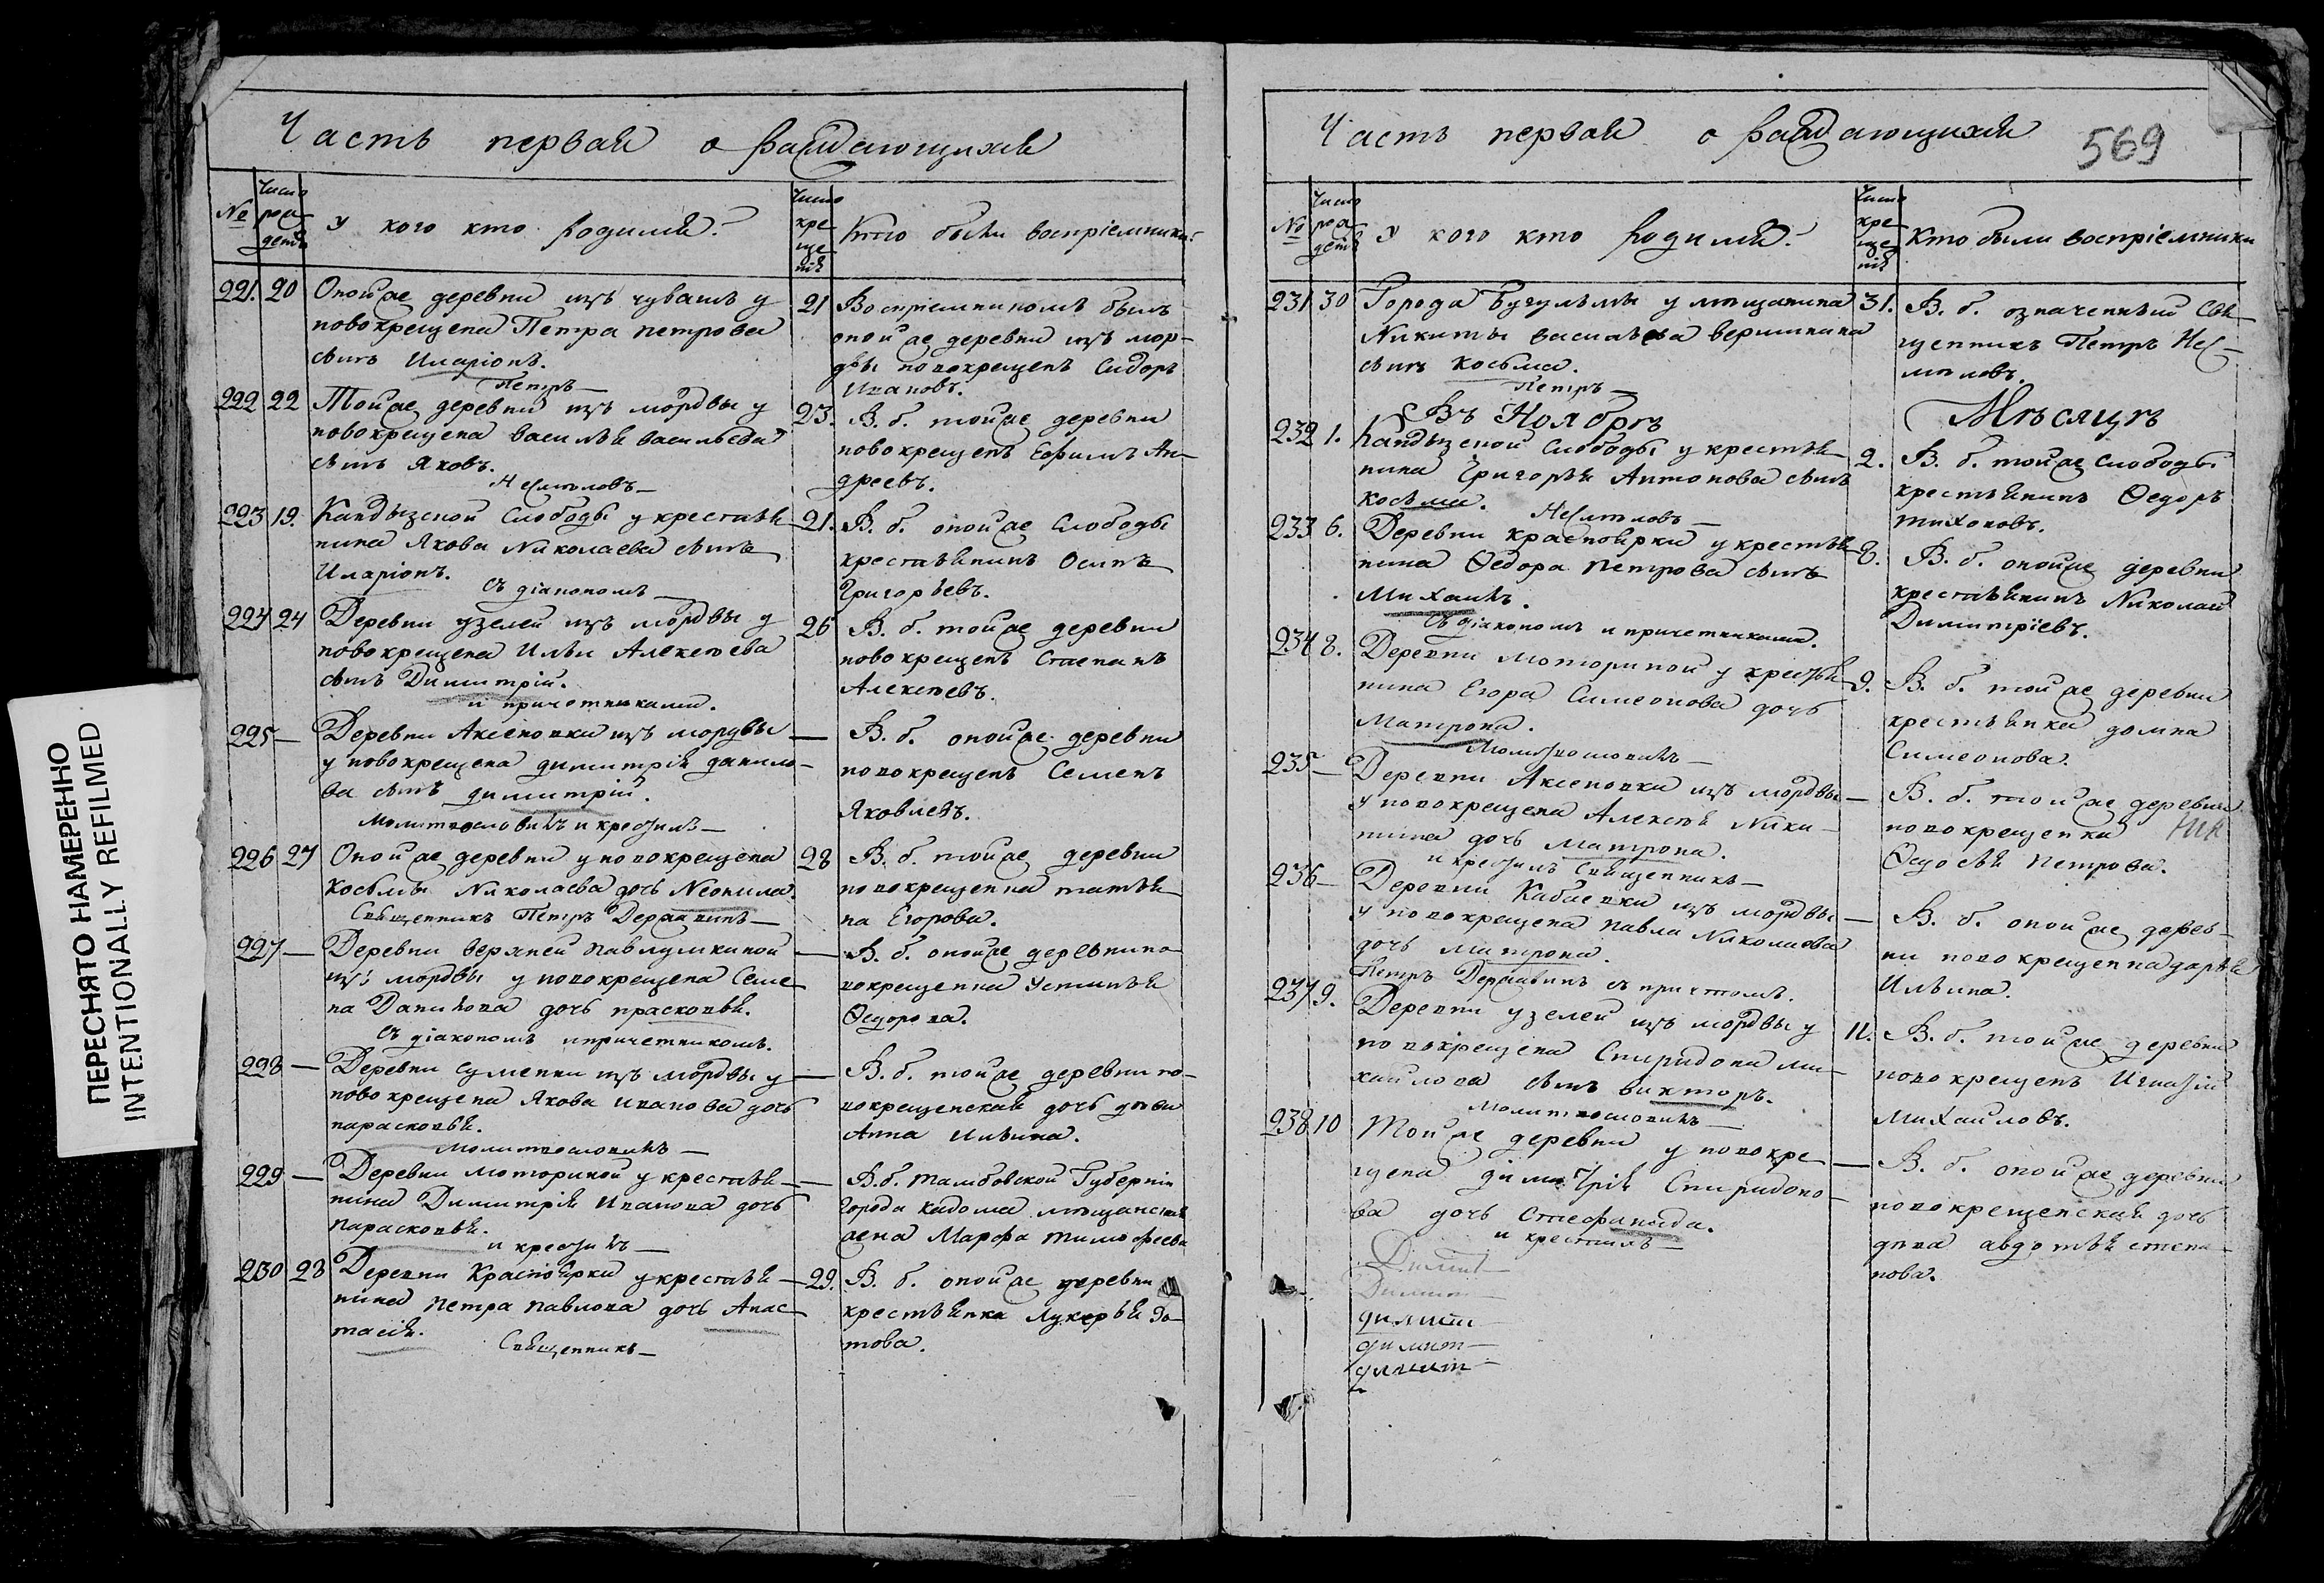 ПЕРЕСНЯТО НАМЕРЕННО
INTENTIONALLY REFILMED
Часть первая о раждающихся
№
Число рождения
У кого кто родился?
Число крещения
Кто были воспріемники?
221. 20
Оной же деревни изъ чувашъ у
новокрещена Петра Петрова
сынъ Иларіонъ.
Петръ —
21
Воспріемникомъ былъ
оной же деревни изъ мор-
двы новокрещенъ Сидоръ
Ивановъ.
222 22
Той же деревни изъ мордвы у
новокрещена Василья Васильева
сынъ Яковъ.
23.
В. б. той же деревни
новокрещенъ Ефимъ Ан-
дреевъ.
223 19.
Кандызской Слободы у крестья-
нина Якова Николаева сынъ
Иларіонъ.
съ діакономъ —
21.
В. б. оной же Слободы
крестьянинъ Осипъ
Григорьевъ.
224 24
Деревни узелей изъ мордвы у
новокрещена Ильи Алексеева
сынъ Димитрій.
и причетниками.
26
В. б. той же деревни
новокрещенъ Степанъ
Алексеевъ.
225 —
Деревни Аксеновки изъ мордвы
у новокрещена димитрія данило-
ва сынъ димитрій.
Молитвословилъ и крестилъ —
—
В. б. оной же деревни
новокрещенъ Семенъ
Яковлевъ.
226 27
Оной же деревни у новокрещена
Косьмы Николаева дочь Неонила.
Священникъ Петръ Державинъ —
28
В. б. той же деревни
новокрещенка татья-
на Егорова.
227 —
Деревни верхней павлушкиной
изъ мордвы у новокрещена Семе-
на Данилова дочь прасковья.
съ діакономъ и причетникомъ.
—
В. б. оной же деревни но-
вокрещенка Устинья
Ѳедорова.
228 —
Деревни Суменки изъ мордвы у
новокрещена Якова иванова дочь
парасковья.
Молитвословилъ —
—
В. б. той же деревни но-
вокрещенская дочь девка
Анна Ильина.
229 —
Деревни моториной у крестья-
нина Димитрія Иванова дочь
Парасковья.
и крестилъ —
—
В. б. тамбовской Губерніи
города кадома мещанская
жена Марфа тимофеева
230 28
Деревни Красноярки у крестья-
нина петра павлова дочь Анас-
тасія.
Священникъ —
29.
В. б. оной же деревни
крестьянка Лукерья Зо-
това.
Часть первая о раждающихся
569
№
Число рождения
У кого кто родился?
Число крещения
Кто были воспріемники
231 30
Города Бугульмы у мещанина
Никиты васильева вершинина
сынъ косьма.
Петръ —
31.
В. б. означенный Свя-
щенникъ Петръ
Въ Ноябрѣ
Мѣсяцѣ
232 1.
Кандызской Слободы у крестья-
нина Григорья Антонова сынъ
косьма.
2.
В. б. той же слободы
крестьянинъ Ѳедоръ
тихоновъ.
233 6.
Деревни красноярки у крестья-
нина Ѳедора петрова сынъ
Михаилъ.
съ діакономъ и причетниками.
8.
В. б. оной же деревни
крестьянинъ Николай
Димитріевъ.
234 8.
Деревни моториной у крестья-
нина Егора Симеонова дочь
Матрона.
Молитвословилъ —
9.
В. б. той же деревни
крестьянка домна
Симеонова.
235 —
Деревни Аксеновки изъ мордвы
у новокрещена Алексея Ники-
тина дочь матрона.
и крестилъ Священникъ —
—
В. б. той же деревни
новокрещенка
Ѳедосья петрова.
236 —
Деревни Кабаевки изъ мордвы
у новокрещена павла Николаева
дочь матрона.
Петръ Державинъ съ причтомъ.
—
В. б. оной же дерев-
ни новокрещенка дарья
Ильина.
237 9.
Деревни узелей изъ мордвы у
новокрещена Спиридона ми-
хайлова сынъ викторъ.
Молитвословилъ —
11.
В. б. той же деревни
новокрещенъ Игнатій
михайловъ.
238 10
Той же деревни у новокре-
щена димитрія Спиридоно-
ва дочь Стефанида.
и крестилъ —
—
В. б. оной же деревни
новокрещенская дочь
девка авдотья степа-
нова.
Димит
Димит
димит
димит —
димит